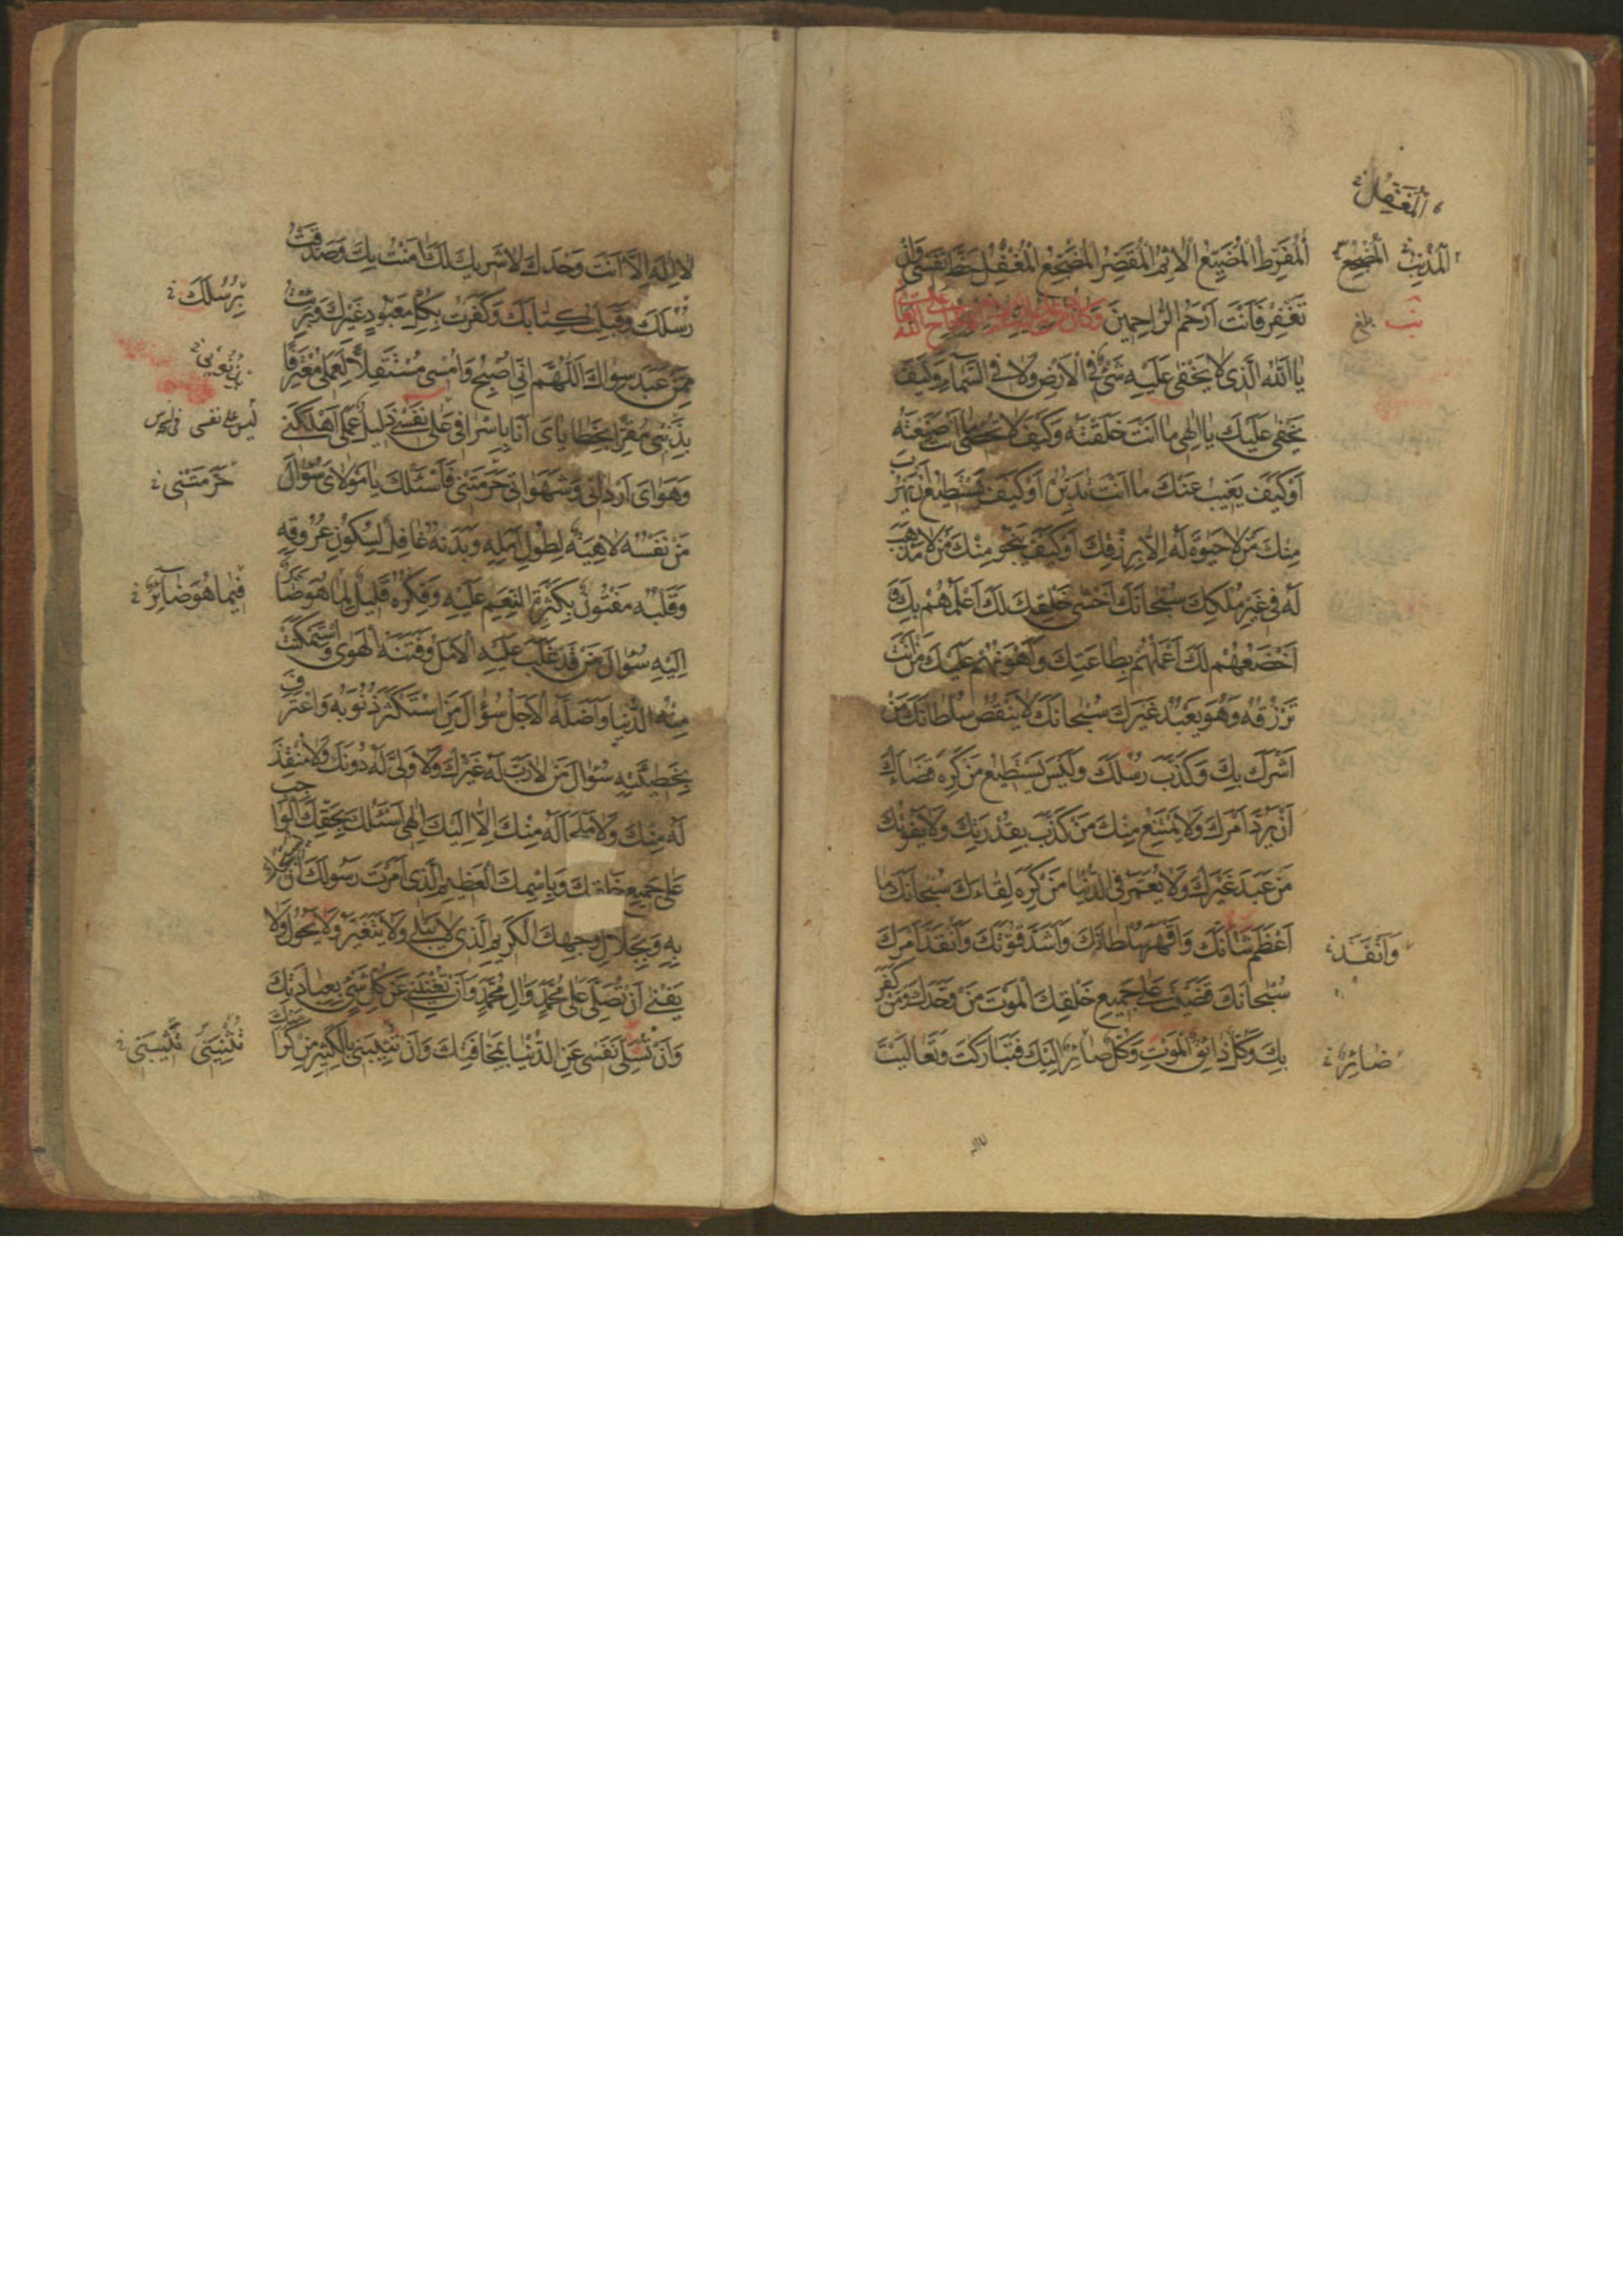 المفرط المضيع الاثم المقصر المضجع المغفل حظ نفسي وان
تغفر فانت ارحم الراحمين وكان من دعائه عليه السلام في الالحاح على الله تعالى
يا الله الذي لا يخفى عليه شيء في الارض ولا في السماء وكيف
يخفى عليك يا الهي ما انت خلقته وكيف لا تحصي ما انت صنعته
او كيف يغيب عنك ما انت تدبره او كيف يستطيع ان يهرب
منك من لا حيوة له الا برزقك او كيف ينجو منك من لا مذهب
له في غير ملكك سبحانك اخشى خلقك لك اعلمهم بك و
اخضعهم لك اعملهم بطاعتك واهونهم عليك من انت
ترزقه وهو يعبد غيرك سبحانك لا ينقص سلطانك من
اشرك بك وكذب رسلك وليس يستطيع من كره قضاءك
ان يرد امرك ولا يمتنع منك من كذب بقدرتك ولا يفوتك
من عبد غيرك ولا يعمر في الدنيا من كره لقاءك سبحانك ما
اعظم شانك واقهر سلطانك واشد قوتك وانفذ امرك
سبحانك قضيت على جميع خلقك الموت من وحدك ومن كفر
بك وكل ذائق الموت وكل صائر اليك فتباركت وتعاليت
المغفل
المذنب المضجع
بلغ
وانفذ
صائر
لا اله
لا اله الا انت وحدك لا شريك لك امنت بك وصدقت
رسلك وقبلت كتابك وكفرت بكل معبود غيرك وبرئت
ممن عبد سواك اللهم اني اصبح وامسي مستقلا لعملي معترفا
بذنبي مقرا بخطاياي انا باسرافي على نفسي ذليل عملي اهلكني
وهواي ارداني وشهواتي حرمتني فاسئلك يا مولاي سؤال
من نفسه لاهية لطول امله وبدنه غافل لسكون عروقه
وقلبه مفتون بكثرة النعم عليه وفكره قليل لما هو صائر
اليه سؤال من قد غلب عليه الامل وفتنه الهوى واستمكنت
منه الدنيا واضله الاجل سؤال من استكثر ذنوبه واعترف
بخطيئته سؤال من لا رب له غيرك ولا ولي له دونك ولا منقذ
له منك ولا ملجا له منك الا اليك الهي اسئلك بحقك الواجب
على جميع خلقك وباسمك العظيم الذي امرت رسولك ان يسبحك
به وبجلال وجهك الكريم الذي لا يبلى ولا يتغير ولا يحول ولا
يفنى ان تصلي على محمد وال محمد وان تغنيني عن كل شيء بعبادتك
وان تسلي نفسي عن الدنيا بمخافتك وان تثنيني بالكثير من كرامتك
برسلك
حرمتني
فيما هو صائر
تثنيني